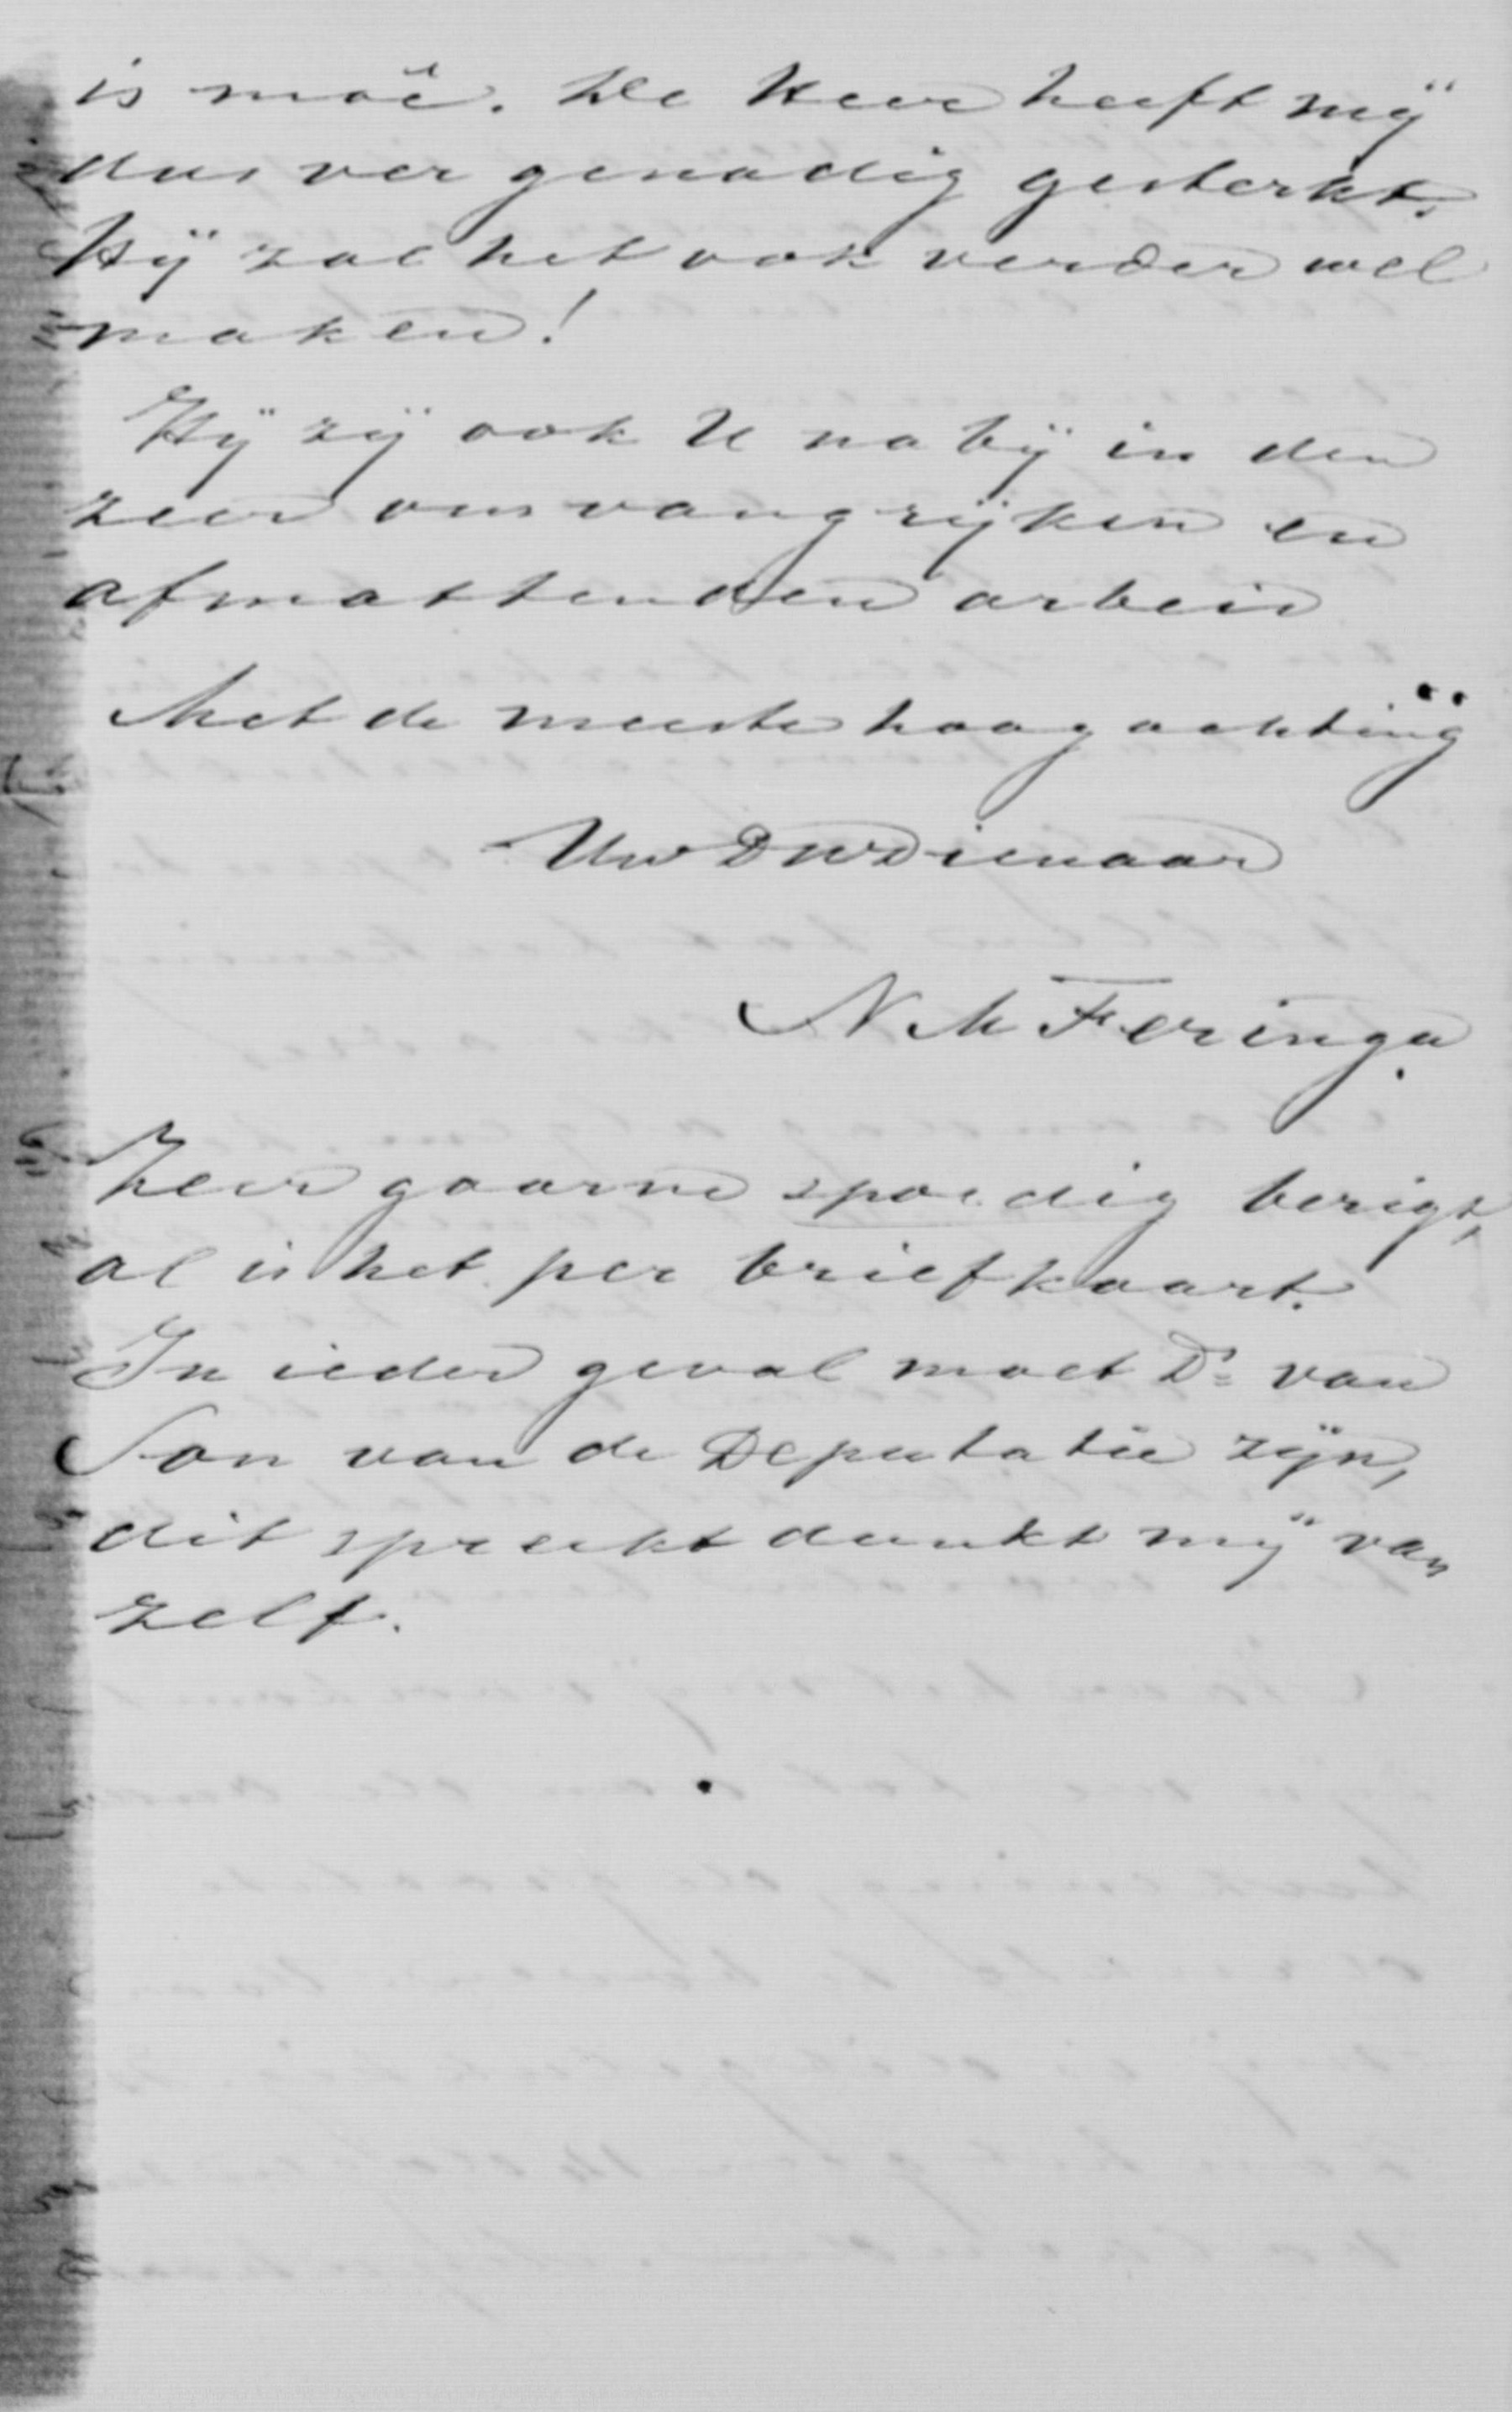 is moê. De Heer heeft mij
dus ver genadig gesterkt.
Hij zal het ook verder wel
maken!
Hij zij ook U nabij in den
zeer omvangrijken en
afmattenden arbeid
Met de meeste hoogachting
Uw DWDienaar
N M Feringa
Zeer gaarne spoedig berigt,
al is het per briefkaart.
In ieder geval moet Ds van
Son van de Deputatie zijn,
dit spreekt dunkt mij van
zelf.